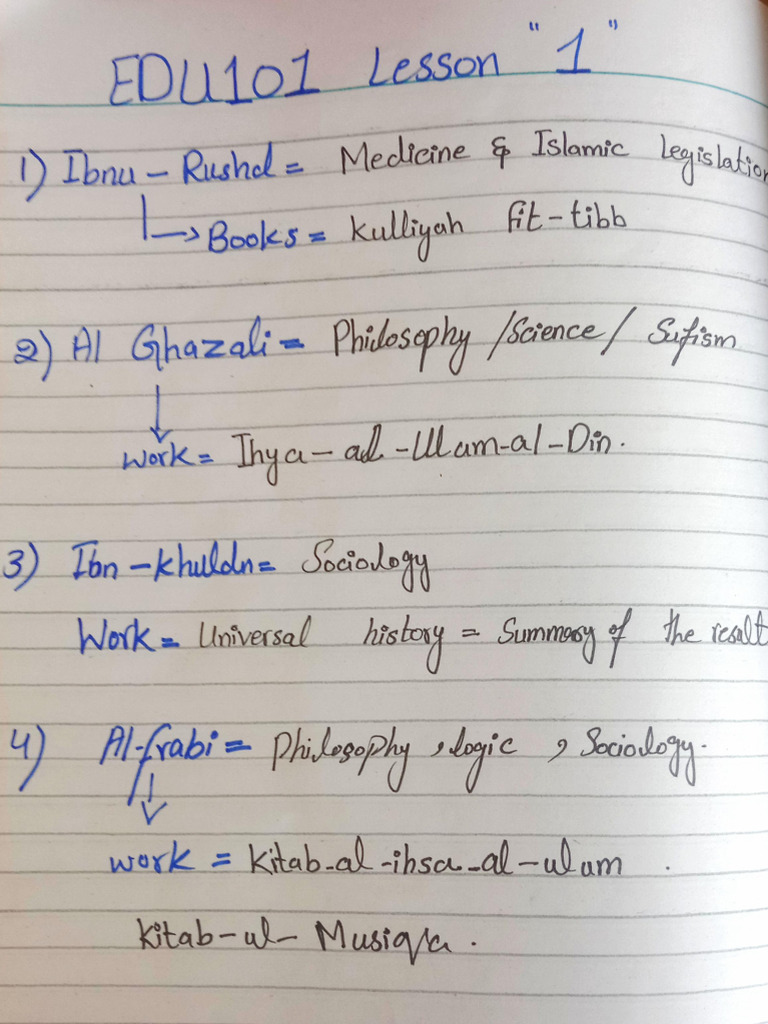 EDU101 Lesson "1"
1) Ibnu - Rushd = Medicine & Islamic legislation
Books = kulliyah fit-tibb
2) Al Ghazali = Philosophy /Science/ Sufism
work = Ihya-ad-Ulum-al-Din.
3) Ibn-khuldn = Sociology
Work = Universal history = Summary of the result
4) Al-frabi = philosophy, logic, Sociology.
work = kitab-al-ihsa-al-ulum.
kitab-ul- Musiqa.